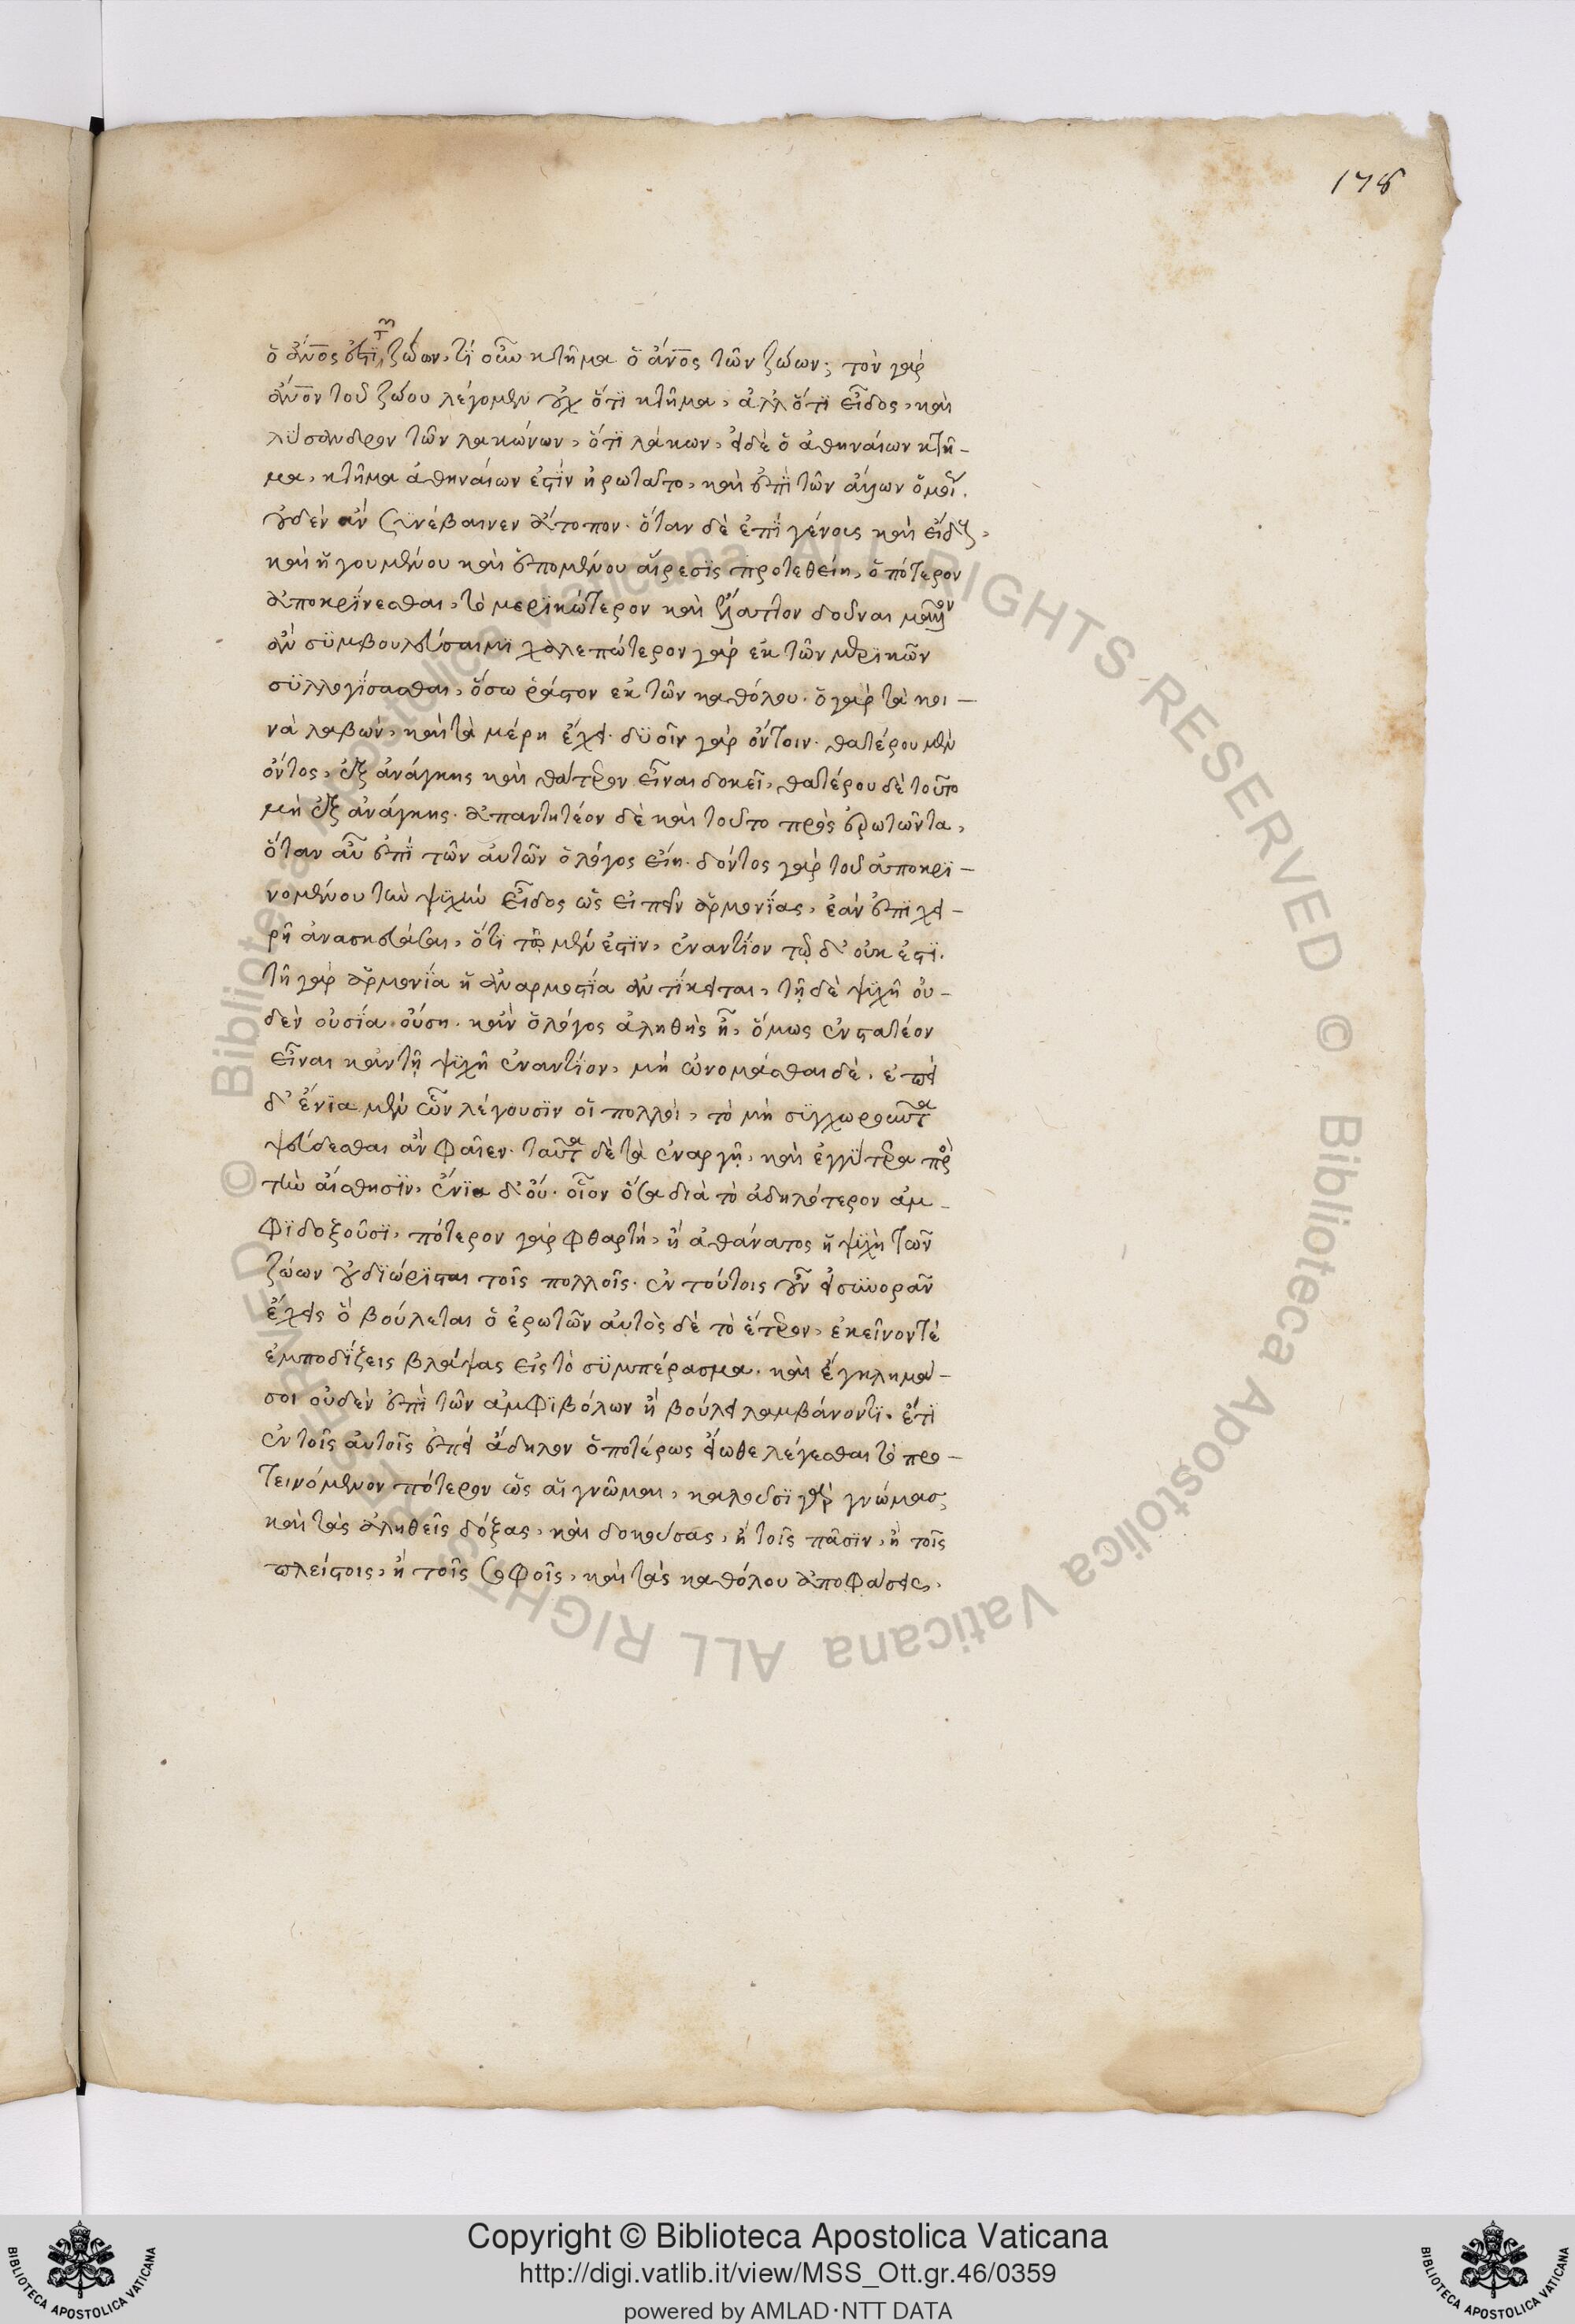 178
ὁ ἄνος ἐστὶ τῶν ζώων, τί οὖν κτῆμα ὁ ἄνος τῶν ζώων; τὸν γὰρ
ἄνον τοῦ ζώου λέγομεν οὐχ ὅτι κτῆμα, ἀλλ ὅτι εἶδος, καὶ
λύσανδρον τῶν λακώνων, ὅτι λάκων, εἰ δὲ ὁ ἀθηναίων κτῆ-
μα, κτῆμα ἀθηναίων ἐστὶν ἠρωτᾶτο, καὶ ἐπὶ τῶν ἄλλων ὁμοί.
οὐδὲν ἂν συνέβαινεν ἄτοπον. ὅταν δὲ ἐπὶ γένους καὶ εἴδους,
καὶ ἡγουμένου καὶ ἑπομένου αἵρεσις προτεθείη, ὁπότερον
ἀποκρίνεσθαι, τὸ μερικώτερον καὶ ἔλαττον δοῦναι μᾶλλον
ἂν συμβουλεύσαιμι χαλεπώτερον γὰρ ἐκ τῶν μερικῶν
συλλογίσασθαι, ὅσω ῥάστον ἐκ τῶν καθόλου. ὁ γὰρ τὰ κοι-
νὰ λαβών, καὶ τὰ μέρη ἔχει. δυσῖν γὰρ ὄντοιν. θατέρου μὲν
ὄντος, ἐξ ἀνάγκης καὶ θάτερον εἶναι δοκεῖ, θατέρου δὲ τοῦτο
μὴ ἐξ ἀνάγκης. ἀπαντητέον δὲ καὶ τοῦτο πρὸς ἐρωτῶντα,
ὅταν αὖ ἐπὶ τῶν αὐτῶν ὁ λόγος εἴη. δόντος γὰρ τοῦ ἀποκρι-
νομένου τὴν ψυχὴν εἶδος ὡς εἰπεῖν ἁρμονίας, ἐὰν ἐπιχει-
ρῆ ἀνασκευάσαι, ὅτι τῶ μέν ἐστιν, ἐναντίον τῷ δ' οὐκ ἐστι.
τῆ γὰρ ἁρμονία ἡ ἀναρμοστία ἀντίκειται, τῇ δὲ ψυχῆ οὐ-
δὲν οὐσία οὔση. κἂν ὁ λόγος ἀληθὴς ἦ, ὅμως ἐνστατέον
εἶναι κἂν τῇ ψυχῆ ἐναντίον, μὴ ὠνομάσθαι δέ. ἐπεὶ
δ' ἔνια μὲν ὧν λέγουσιν οἱ πολλοὶ, τὸ μὴ συγχωροῦντα
ψεύδεσθαι ἂν φαῖεν. ταῦτα δὲ τὰ ἐναργῆ, καὶ ἐγγύτερα πρὸς
τὴν αἴσθησιν, ἔνια δ' οὔ. οἷον ὅσα διὰ τὸ ἀδηλότερον ἀμ-
φιδοξοῦσι, πότερον γὰρ φθαρτή, ἢ ἀθάνατος ἡ ψυχὴ τῶν
ζώων οὐ διώρισται τοῖς πολλοῖς. ἐν τούτοις οὖν εἰ συνορᾶν
ἔχεις ὃ βούλεται ὁ ἐρωτῶν αὐτὸς δὲ τὸ ἕτερον, ἐκεῖνον τὲ
ἐμποδίζεις βλάψας εἰς τὸ συμπέρασμα. καὶ ἔγκλημά
σοι οὐδὲν ἐπὶ τῶν ἀμφιβόλων ἢ βούλει λαμβάνοντι. ἔτι
ἐν τοῖς αὐτοῖς ἐπεὶ ἄδηλον ὁποτέρως εἴωθε λέγεσθαι τὸ προ-
τεινόμενον πότερον ὡς αἱ γνῶμαι, καλοῦσι γὰρ γνώμας,
καὶ τὰς ἀληθεῖς δόξας, καὶ δοκούσας, ἢ τοῖς πᾶσιν, ἢ τοῖς
πλείστοις, ἢ τοῖς σοφοῖς, καὶ τὰς καθόλου ἀποφάσεις,
Copyright © Biblioteca Apostolica Vaticana
http://digi.vatlib.it/view/MSS_Ott.gr.46/0359
powered by AMLAD·NTT DATA
BIBLIOTECA APOSTOLICA VATICANA
BIBLIOTECA APOSTOLICA VATICANA
© Biblioteca Apostolica Vaticana ALL RIGHTS RESERVED © Biblioteca Apostolica Vaticana ALL RIGHTS RESERVED